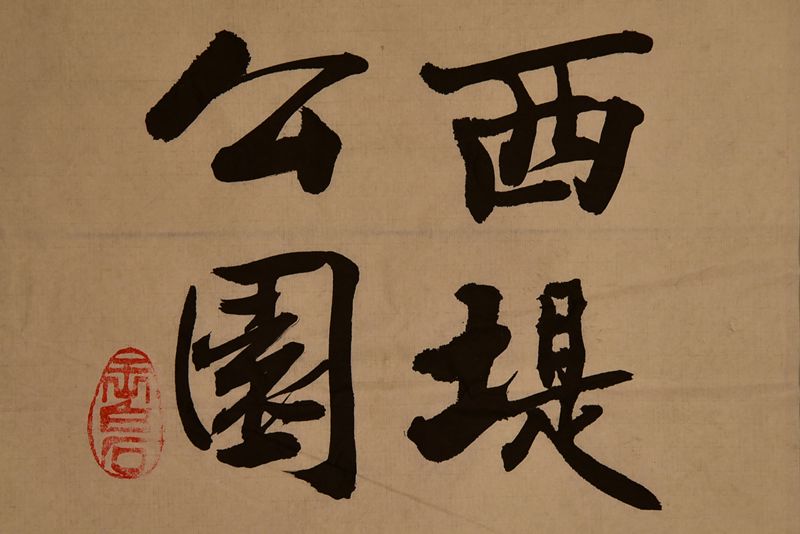 西堤
公園